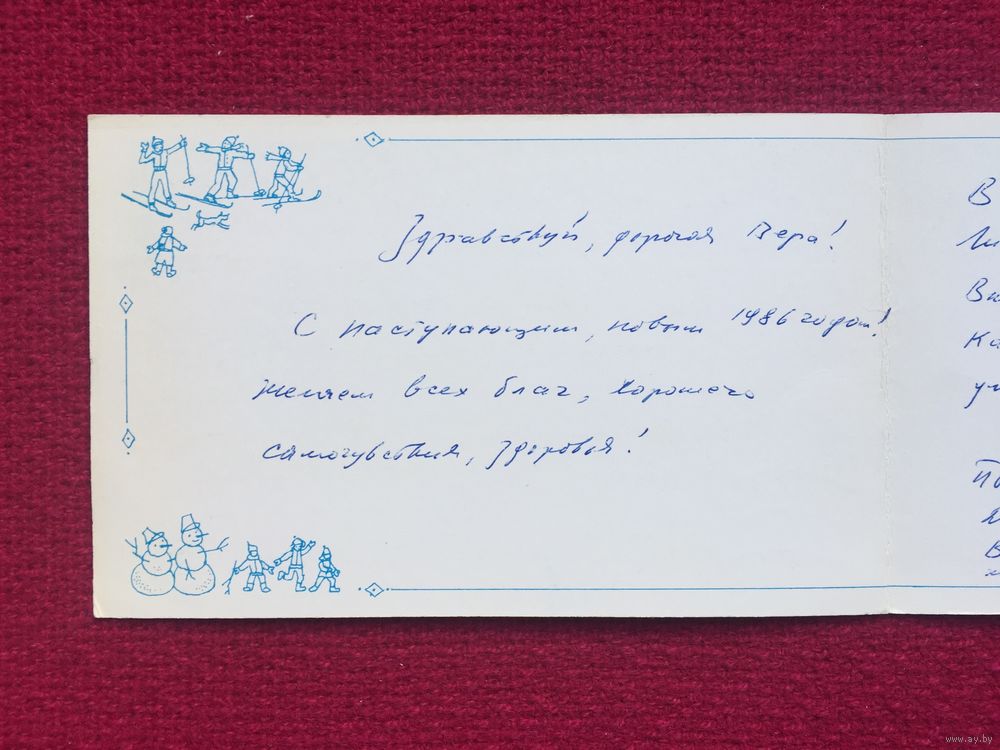 Здравствуй, дорогая Вера!
С наступающим, новым 1986 годом!
Желаем всех благ, хорошего
самочувствия, здоровья!
В
www.ay.by